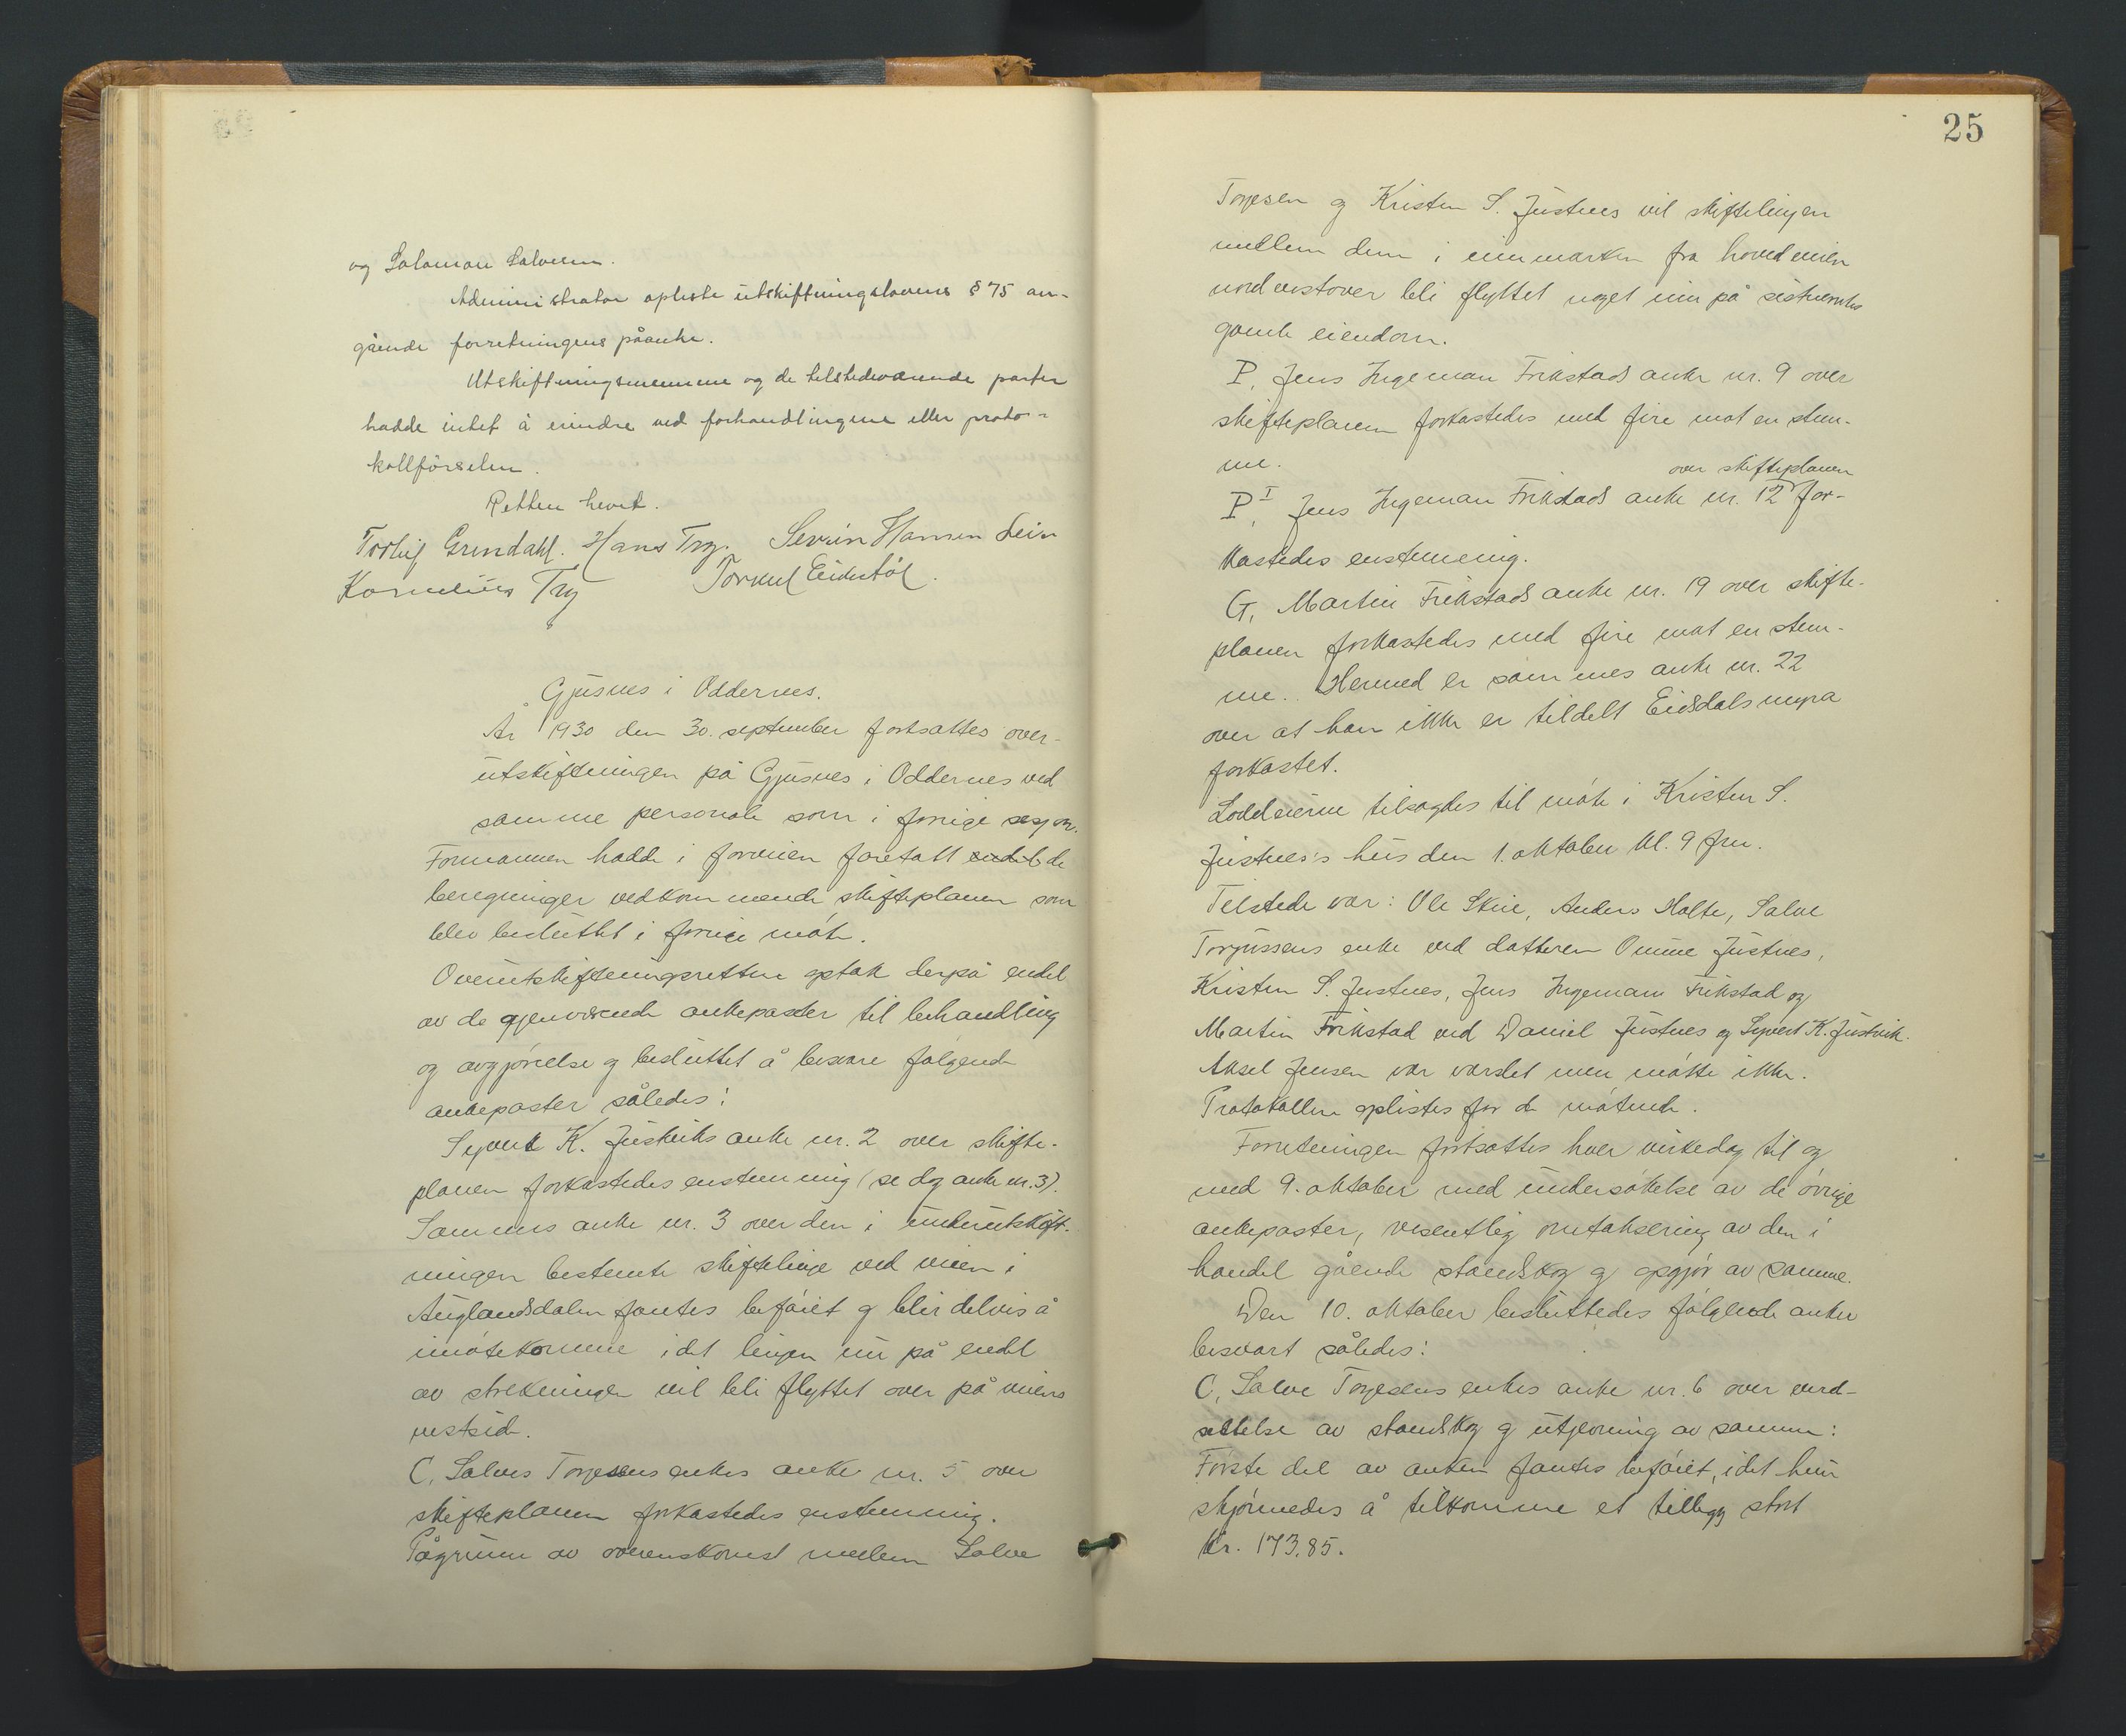 og Salomon Salvesen.
Administrator opleste utskiftningslovens § 75 an-
gående forretningens påanke.
Utskiftningsmennene og de tilstedeværende parter
hadde intet å erindre ved forhandlingene eller proto-
kollförselen.
Retten hevet.
Torleif Grendahl. Hans Try. Severin Hansen Lein
Kornelius Try Torkel Eidestöl.
Gjusnes i Oddernes.
År 1930 den 30. september fortsattes over-
utskiftningen på Gjusnes i Oddernes ved
samme personale som i forrige sesjon.
Formannen hadde i forveien foretatt endel de
beregninger vedkommende skifteplanen som
blev besluttet i forrige möte.
Overutskiftningsretten optok derpå endel
av de gjenværende ankeposter til behandling
og avgjörelse og besluttet å besvare fölgende
ankeposter således:
Syvert K. Justviks anke nr. 2 over skifte-
planen forkastedes enstemmig (se dog anke nr. 3).
Sammes anke nr. 3 over den i underutskift-
ningen bestemte skiftelinje ved veien i
Auglandsdalen fantes beföiet og blir delvis å
imötekomme idet linjen nu på endel
av strekningen vil bli flyttet over på veiens
vestside.
C, Salves Torjesens enkes anke nr. 5 over
skifteplanen forkastedes enstemmig.
Pågrunn av overenskomst mellem Salve
25
Torjesen og Kristen S. Justnes vil skiftelinjen
mellem dem i innmarken fra hovedveien
nordvestover bli flyttet noget inn på sistnevntes
gamle eiendom.
P, Jens Ingeman Frikstads anke nr. 9 over
skifteplanen forkastedes med fire mot en stem-
me.
over skifteplanen
P I, Jens Ingeman Frikstads anke nr. 12 for-
kastedes enstemmig.
G, Martin Frikstads anke nr. 19 over skifte-
planen forkastedes med fire mot en stem-
me. Hermed er sammes anke nr. 22
over at han ikke er tildelt Eidsdalsmyra
forkastet.
Loddeierne tilsagdes til möte i Kristen S.
Justnes's hus den 1. oktober kl. 9 fm.
Tilstede var: Ole Skeie, Anders Holte, Salve
Torjussens enke ved datteren Omine Justnes,
Kristen S. Justnes, Jens Ingeman Frikstad og
Martin Frikstad ved Daniel Justnes og Syvert K. Justvik.
Aksel Jensen var varslet men mötte ikke.
Protokollen oplestes for de mötende.
Forretningen fortsattes hver virkedag til og
med 9. oktober med undersökelse av de övrige
ankeposter, vesentlig omtaksering av den i
handel gående standskog og opgjör av samme.
Den 10. oktober besluttedes fölgende anker
besvart således:
C, Salve Torjesens enkes anke nr. 6 over verd-
settelse av standskog og utjevning av samme:
Förste del av anken fantes beföiet, idet hun
skjönnedes å tilkomme et tillegg stort
kr. 173,85.